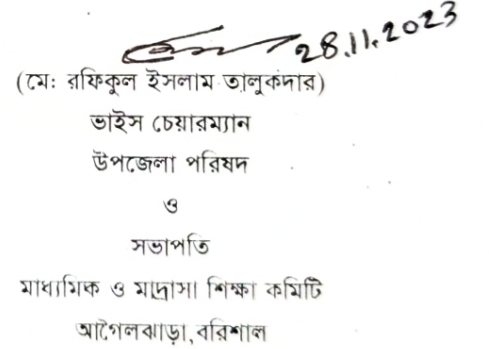 28.11.2023
(মোঃ রফিকুল ইসলাম তালুকদার)
ভাইস চেয়ারম্যান
উপজেলা পরিষদ
ও
সভাপতি
মাধ্যমিক ও মাদ্রাসা শিক্ষা কমিটি
আগৈলঝাড়া, বরিশাল